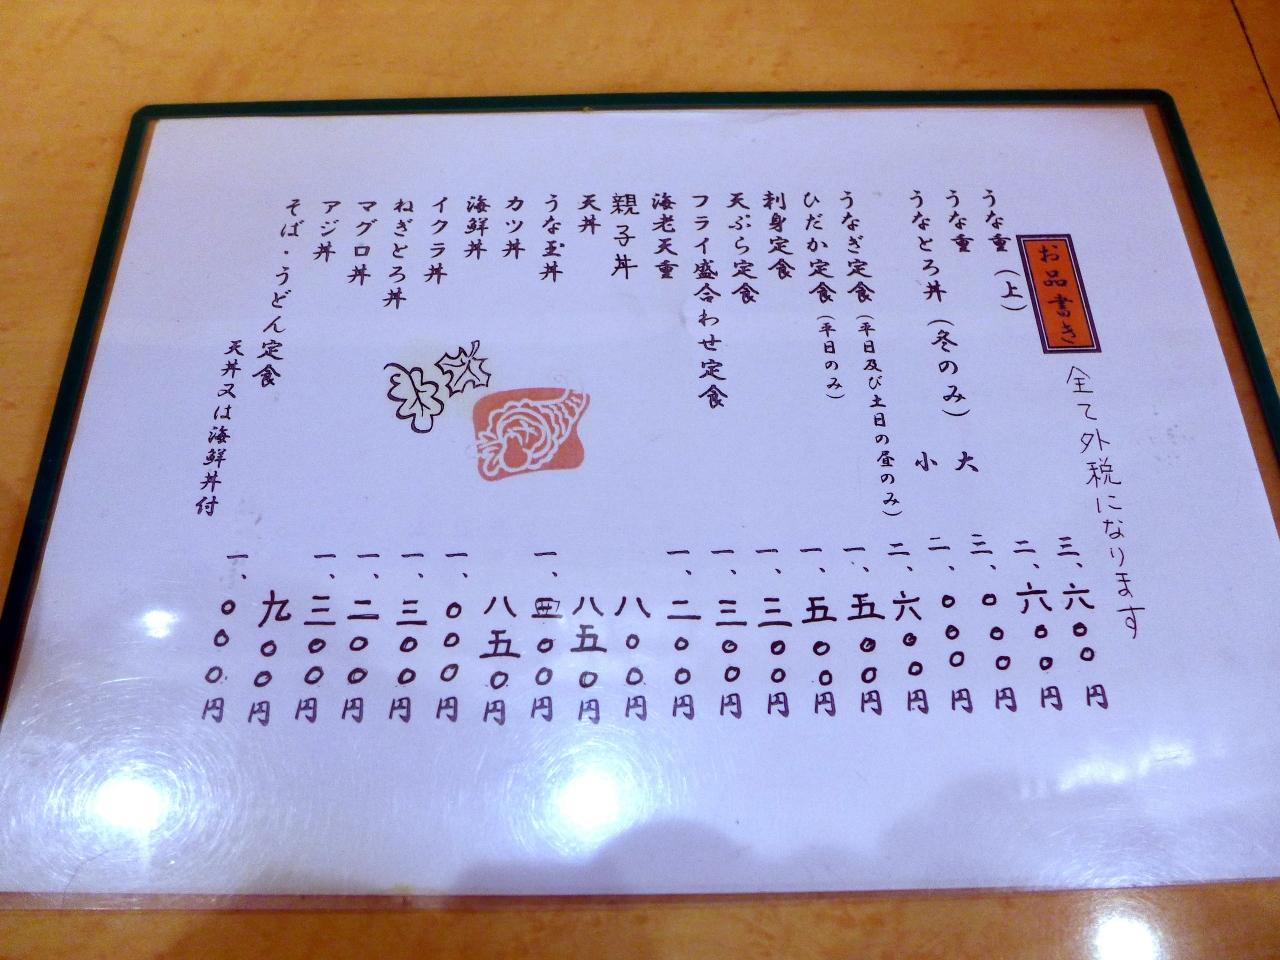 お品書き
全て外税になります
うな重(上) 三、六〇〇円
うな重 二、六〇〇円
うなとろ丼(冬のみ) 大 三、〇〇〇円
小 二、〇〇〇円
うなぎ定食(平日及び土日の昼のみ) 二、六〇〇円
ひだか定食(平日のみ) 一、五〇〇円
刺身定食 一、五〇〇円
天ぷら定食 一、三〇〇円
フライ盛合わせ定食 一、三〇〇円
海老天重 一、二〇〇円
親子丼 八〇〇円
天丼 八五〇円
うな玉丼 一、四〇〇円
カツ丼 八五〇円
海鮮丼 一、〇〇〇円
イクラ丼 一、三〇〇円
ねぎとろ丼 一、二〇〇円
マグロ丼 一、三〇〇円
アジ丼 九〇〇円
そば・うどん定食
天丼又は海鮮丼付 一、〇〇〇円